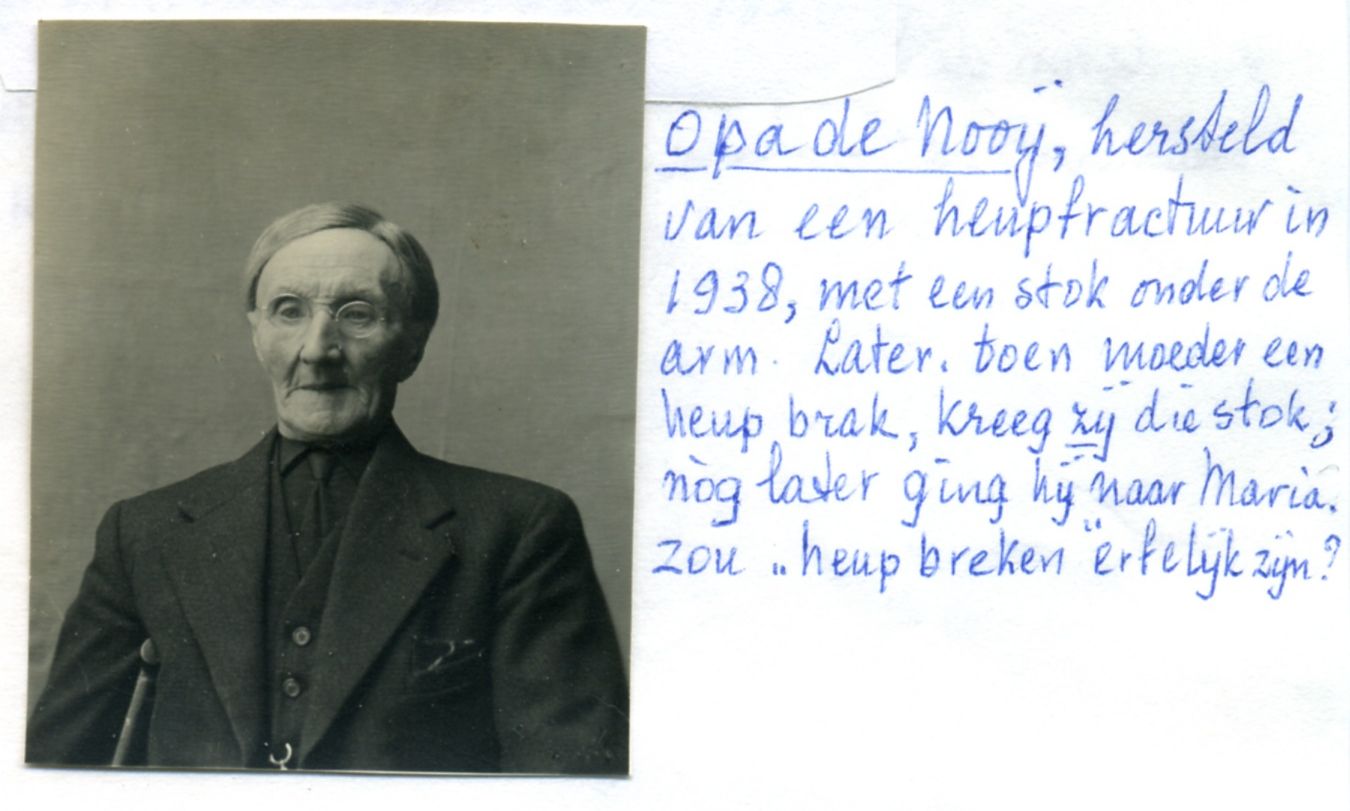 Opa de Nooij, hersteld
van een heupfractuur in
1938, met een stok onder de
arm. Later. toen moeder een
heup brak, kreeg zij die stok;
nòg later ging hij naar Maria.
zou „heup breken" erfelijk zijn?